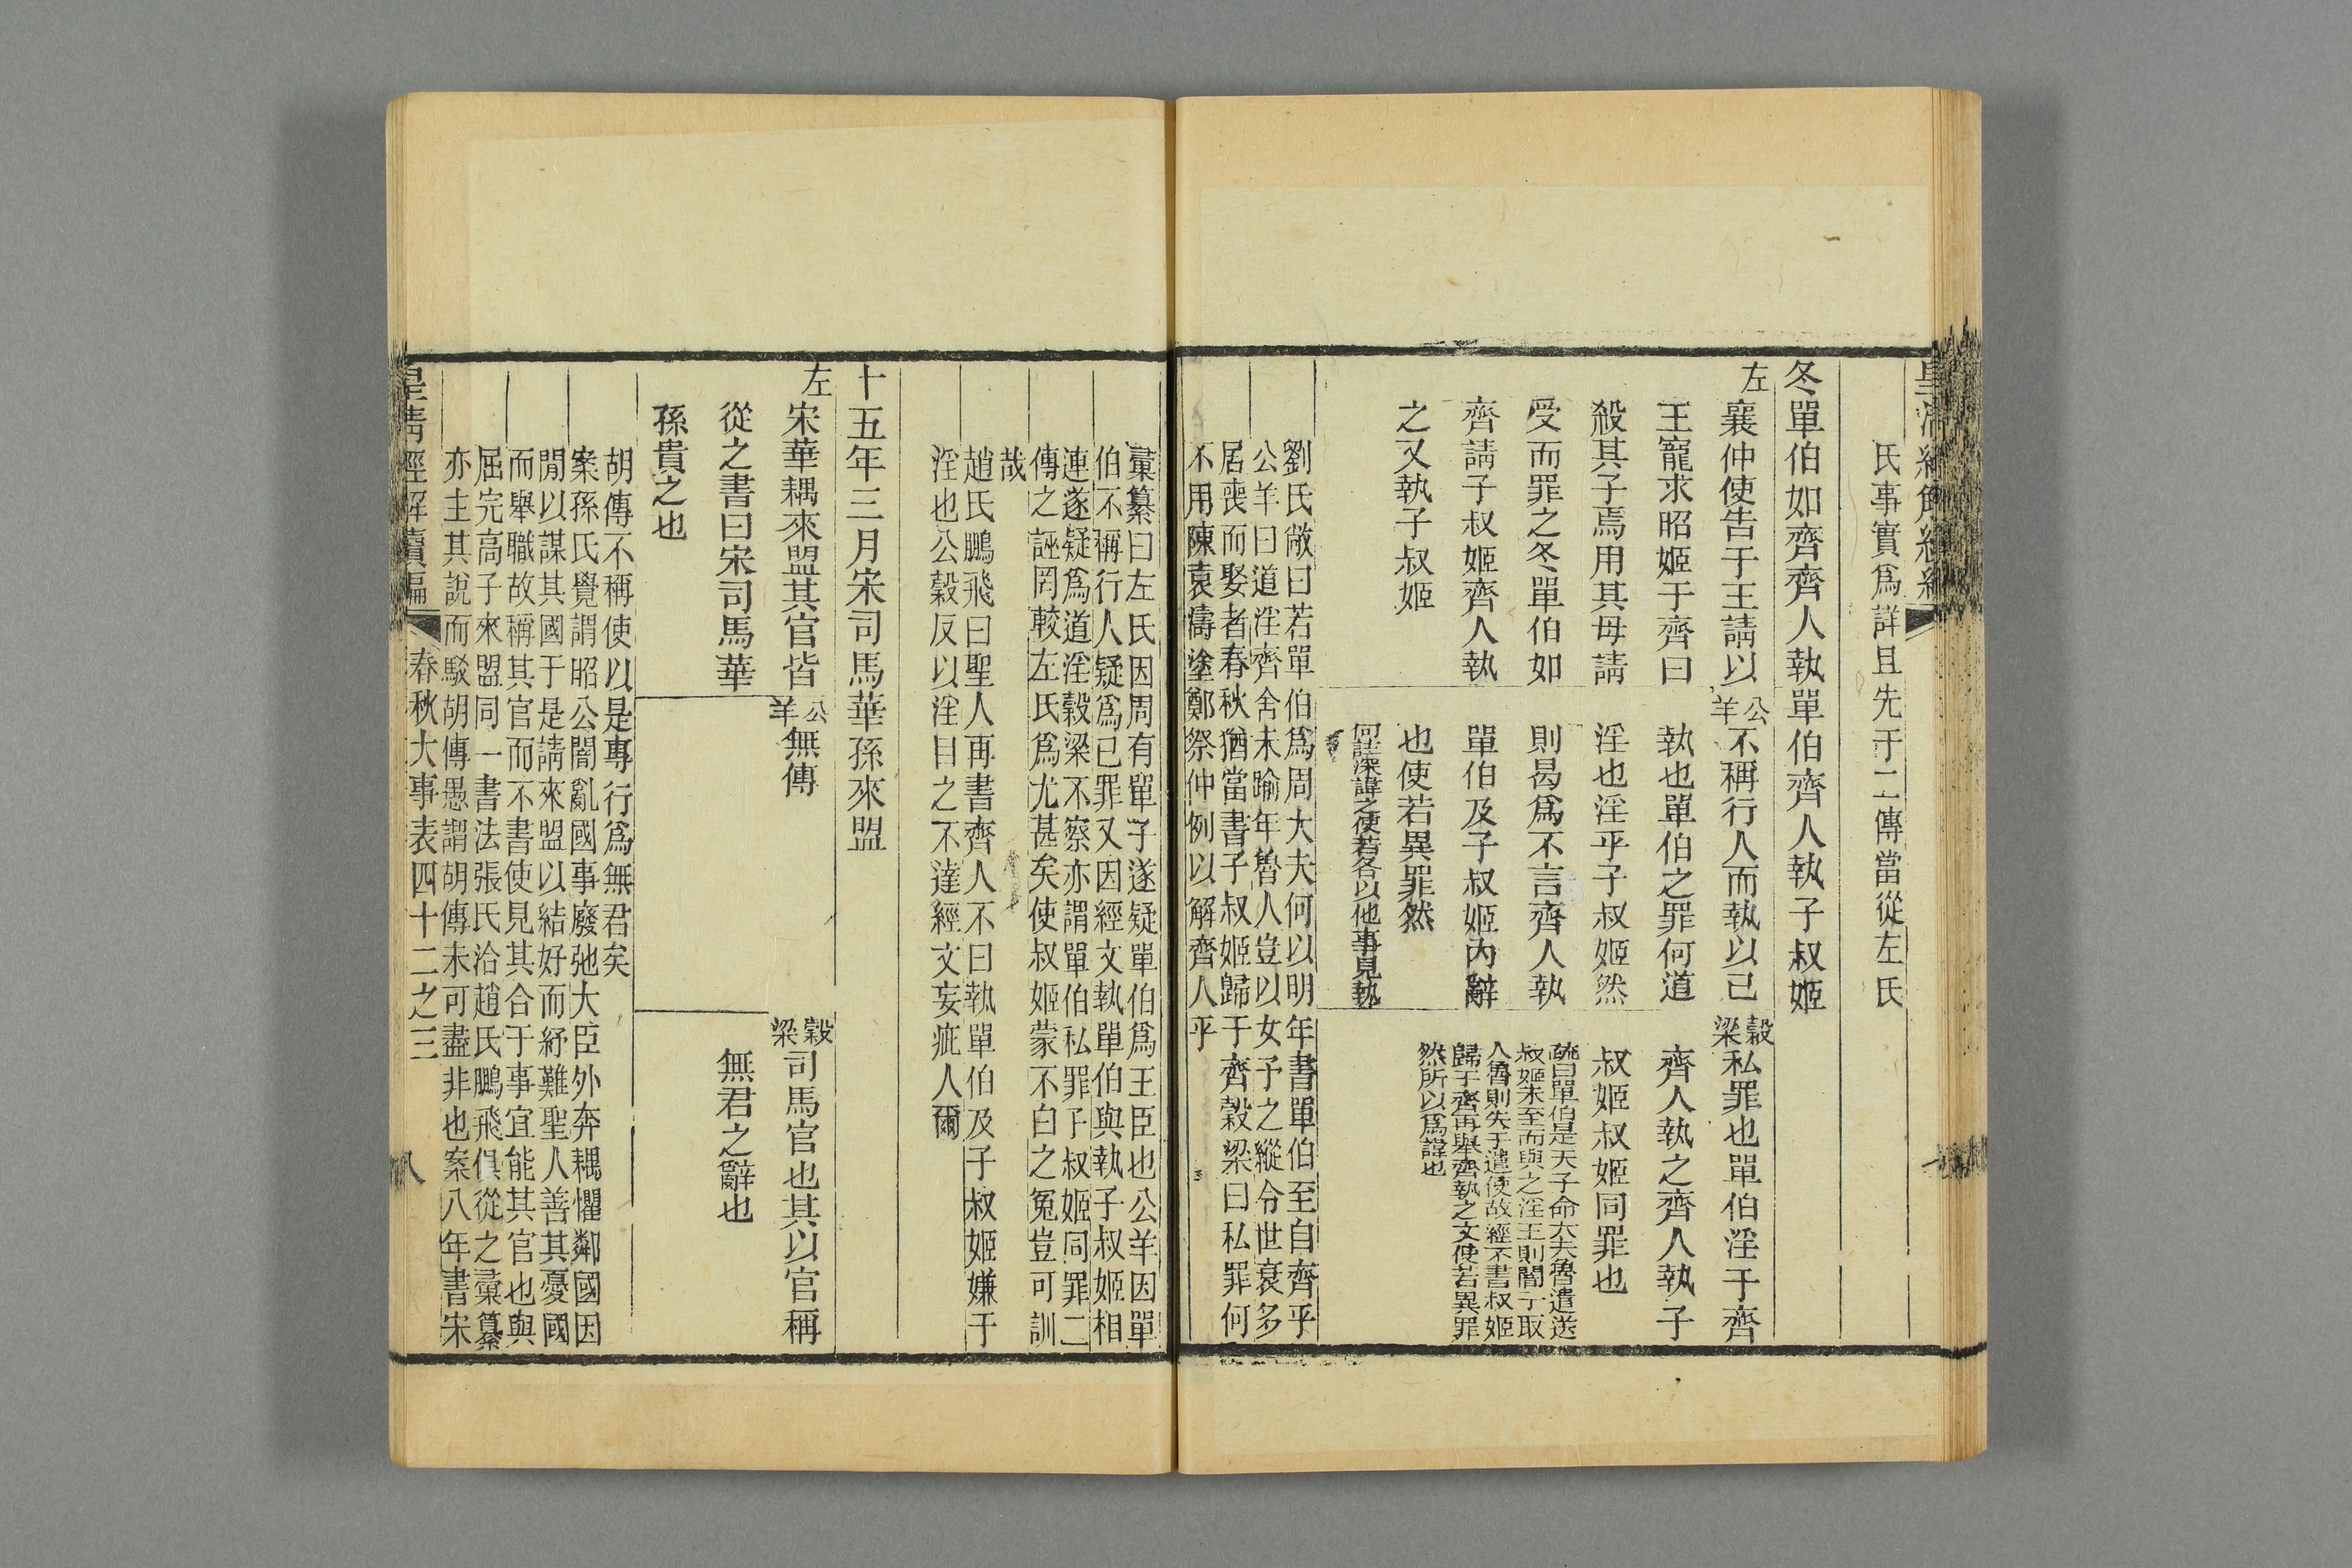 氏事實爲詳且先于二傳當從左氏
冬單伯如齊齊人執單伯齊人執子叔姬
左
襄仲使告于王請以
王寵求昭姬于齊曰
殺其子焉用其母請
受而罪之冬單伯如
齊請子叔姬齊人執
之又執子叔姬
公羊
不稱行人而執以己
執也單伯之罪何道
淫也淫乎子叔姬然
則曷爲不言齊人執
單伯及子叔姬內辭
也使若異罪然
何註深諱之使若各以他事見執
穀梁
私罪也單伯淫于齊
齊人執之齊人執子
叔姬叔姬同罪也
疏曰單伯是天子命大夫魯遣送
叔姬未至而與之淫王則闇于取
人魯則失于遣使故經不書叔姬
歸于齊再舉齊執之文使若異罪
然所以爲諱也
劉氏敞曰若單伯爲周大夫何以明年書單伯至自齊乎
公羊曰道淫齊舍未踰年魯人豈以女予之縱令世衰多
居喪而娶者春秋猶當書子叔姬歸于齊穀梁曰私罪何
不用陳袁濤塗鄭祭仲例以解齊人乎
彙纂曰左氏因周有單子遂疑單伯爲王臣也公羊因單
伯不稱行人疑爲己罪又因經文執單伯與執子叔姬相
連遂疑爲道淫穀梁不察亦謂單伯私罪子叔姬同罪二
傳之誣罔較左氏爲尤甚矣使叔姬蒙不白之冤豈可訓
哉
趙氏鵬飛曰聖人再書齊人不曰執單伯及子叔姬嫌于
淫也公穀反以淫目之不達經文妄疵人爾
十五年三月宋司馬華孫來盟
左
宋華耦來盟其官皆
從之書曰宋司馬華
孫貴之也
公羊
無傳
穀梁
司馬官也其以官稱
無君之辭也
胡傳不稱使以是專行爲無君矣
案孫氏覺謂昭公闇亂國事廢弛大臣外奔耦懼鄰國因
閒以謀其國于是請來盟以結好而紓難聖人善其憂國
而舉職故稱其官而不書使見其合于事宜能其官也與
屈完高子來盟同一書法張氏洽趙氏鵬飛俱從之彙纂
亦主其說而駁胡傳愚謂胡傳未可盡非也案八年書宋
皇清經解續編 春秋大事表四十二之三 八